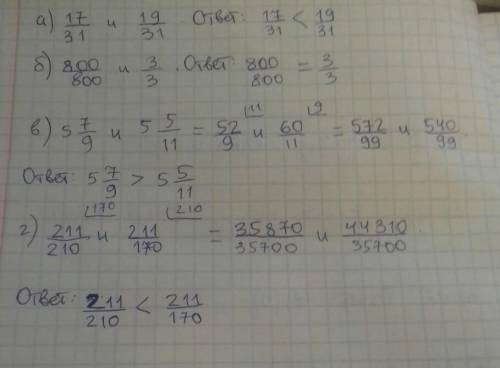 а) 17/31 и 19/31 Ответ: 17/31 < 19/31
б) 800/800 и 3/3. Ответ: 800/800 = 3/3
в) 5 7/9 и 5 5/11 = 52/9 (11 и 60/11 (9 = 572/99 и 540/99.
Ответ: 5 7/9 > 5 5/11
г) 211/210 (170 и 211/170 (210 = 35870/35700 и 44310/35700.
Ответ: 211/210 < 211/170